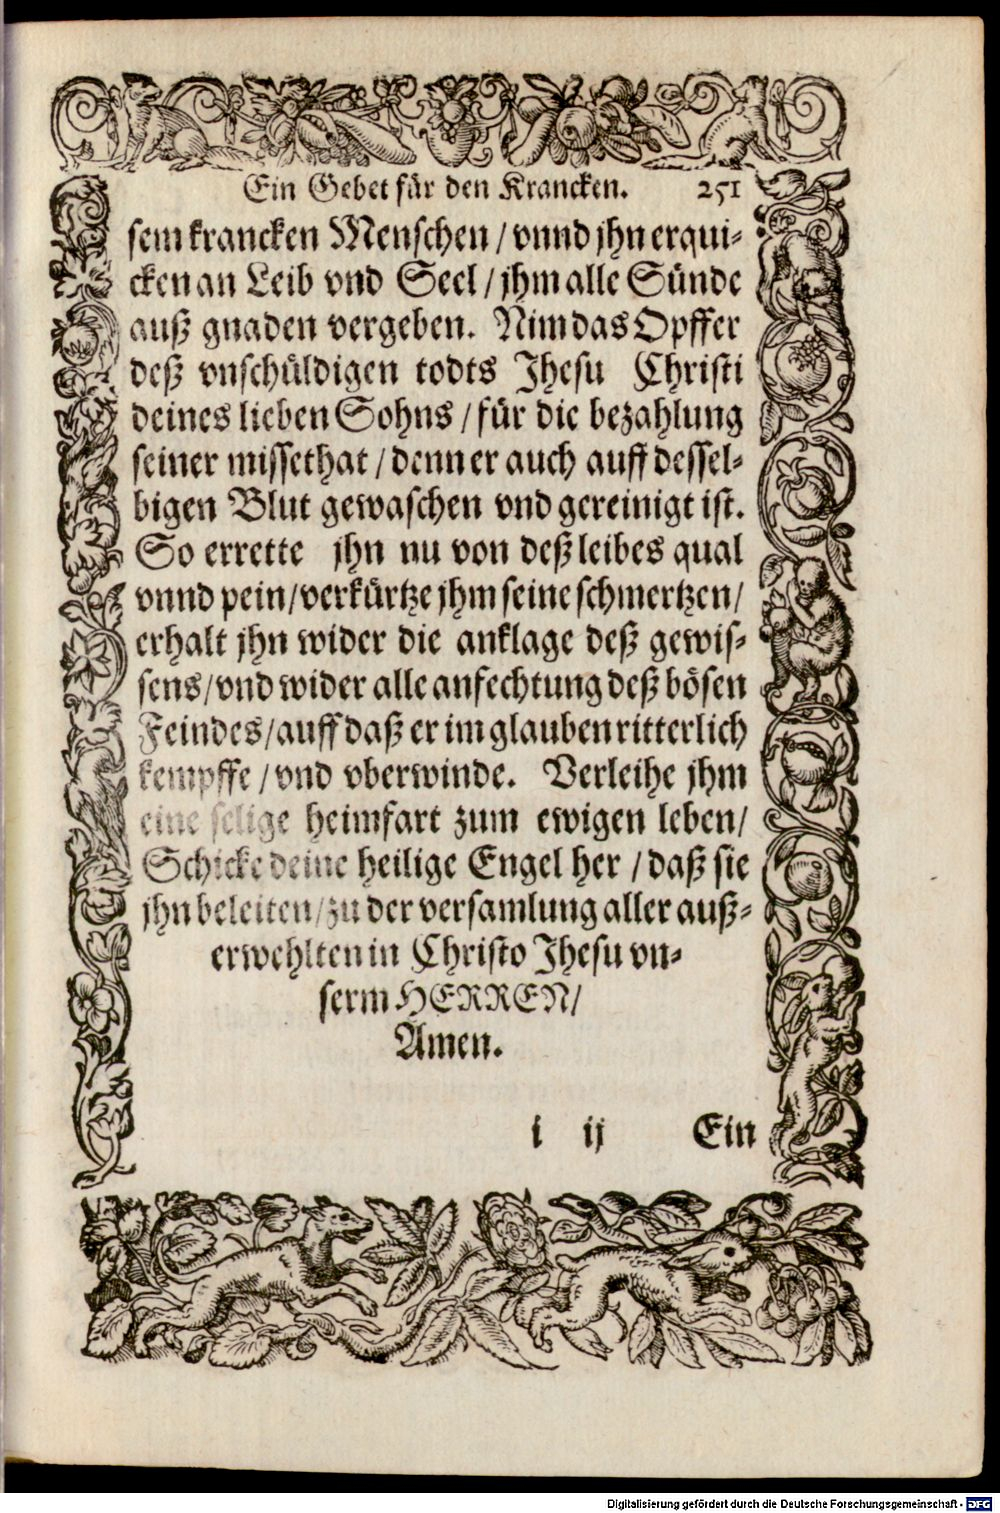 Ein Gebet für den Krancken. 251
sem krancken Menschen / vnnd jhn erqui-
cken an Leib vnd Seel / jhm alle Sünde
auß gnaden vergeben. Nim das Opffer
deß vnschüldigen todts Jhesu Christi
deines lieben Sohns / für die bezahlung
seiner missethat / denn er auch auff dessel-
bigen Blut gewaschen vnd gereinigt ist.
So errette jhn nu von deß leibes qual
vnnd pein / verkürtze jhm seine schmertzen /
erhalt jhn wider die anklage deß gewis-
sens / vnd wider alle anfechtung deß bösen
Feindes / auff daß er im glauben ritterlich
kempffe / vnd vberwinde. Verleihe jhm
eine selige heimfart zum ewigen leben /
Schicke deine heilige Engel her / daß sie
jhn beleiten / zu der versamlung aller auß-
erwehlten in Christo Jhesu vn-
serm HERREN /
Amen.
i ij Ein
Digitalisierung gefördert durch die Deutsche Forschungsgemeinschaft - DFG